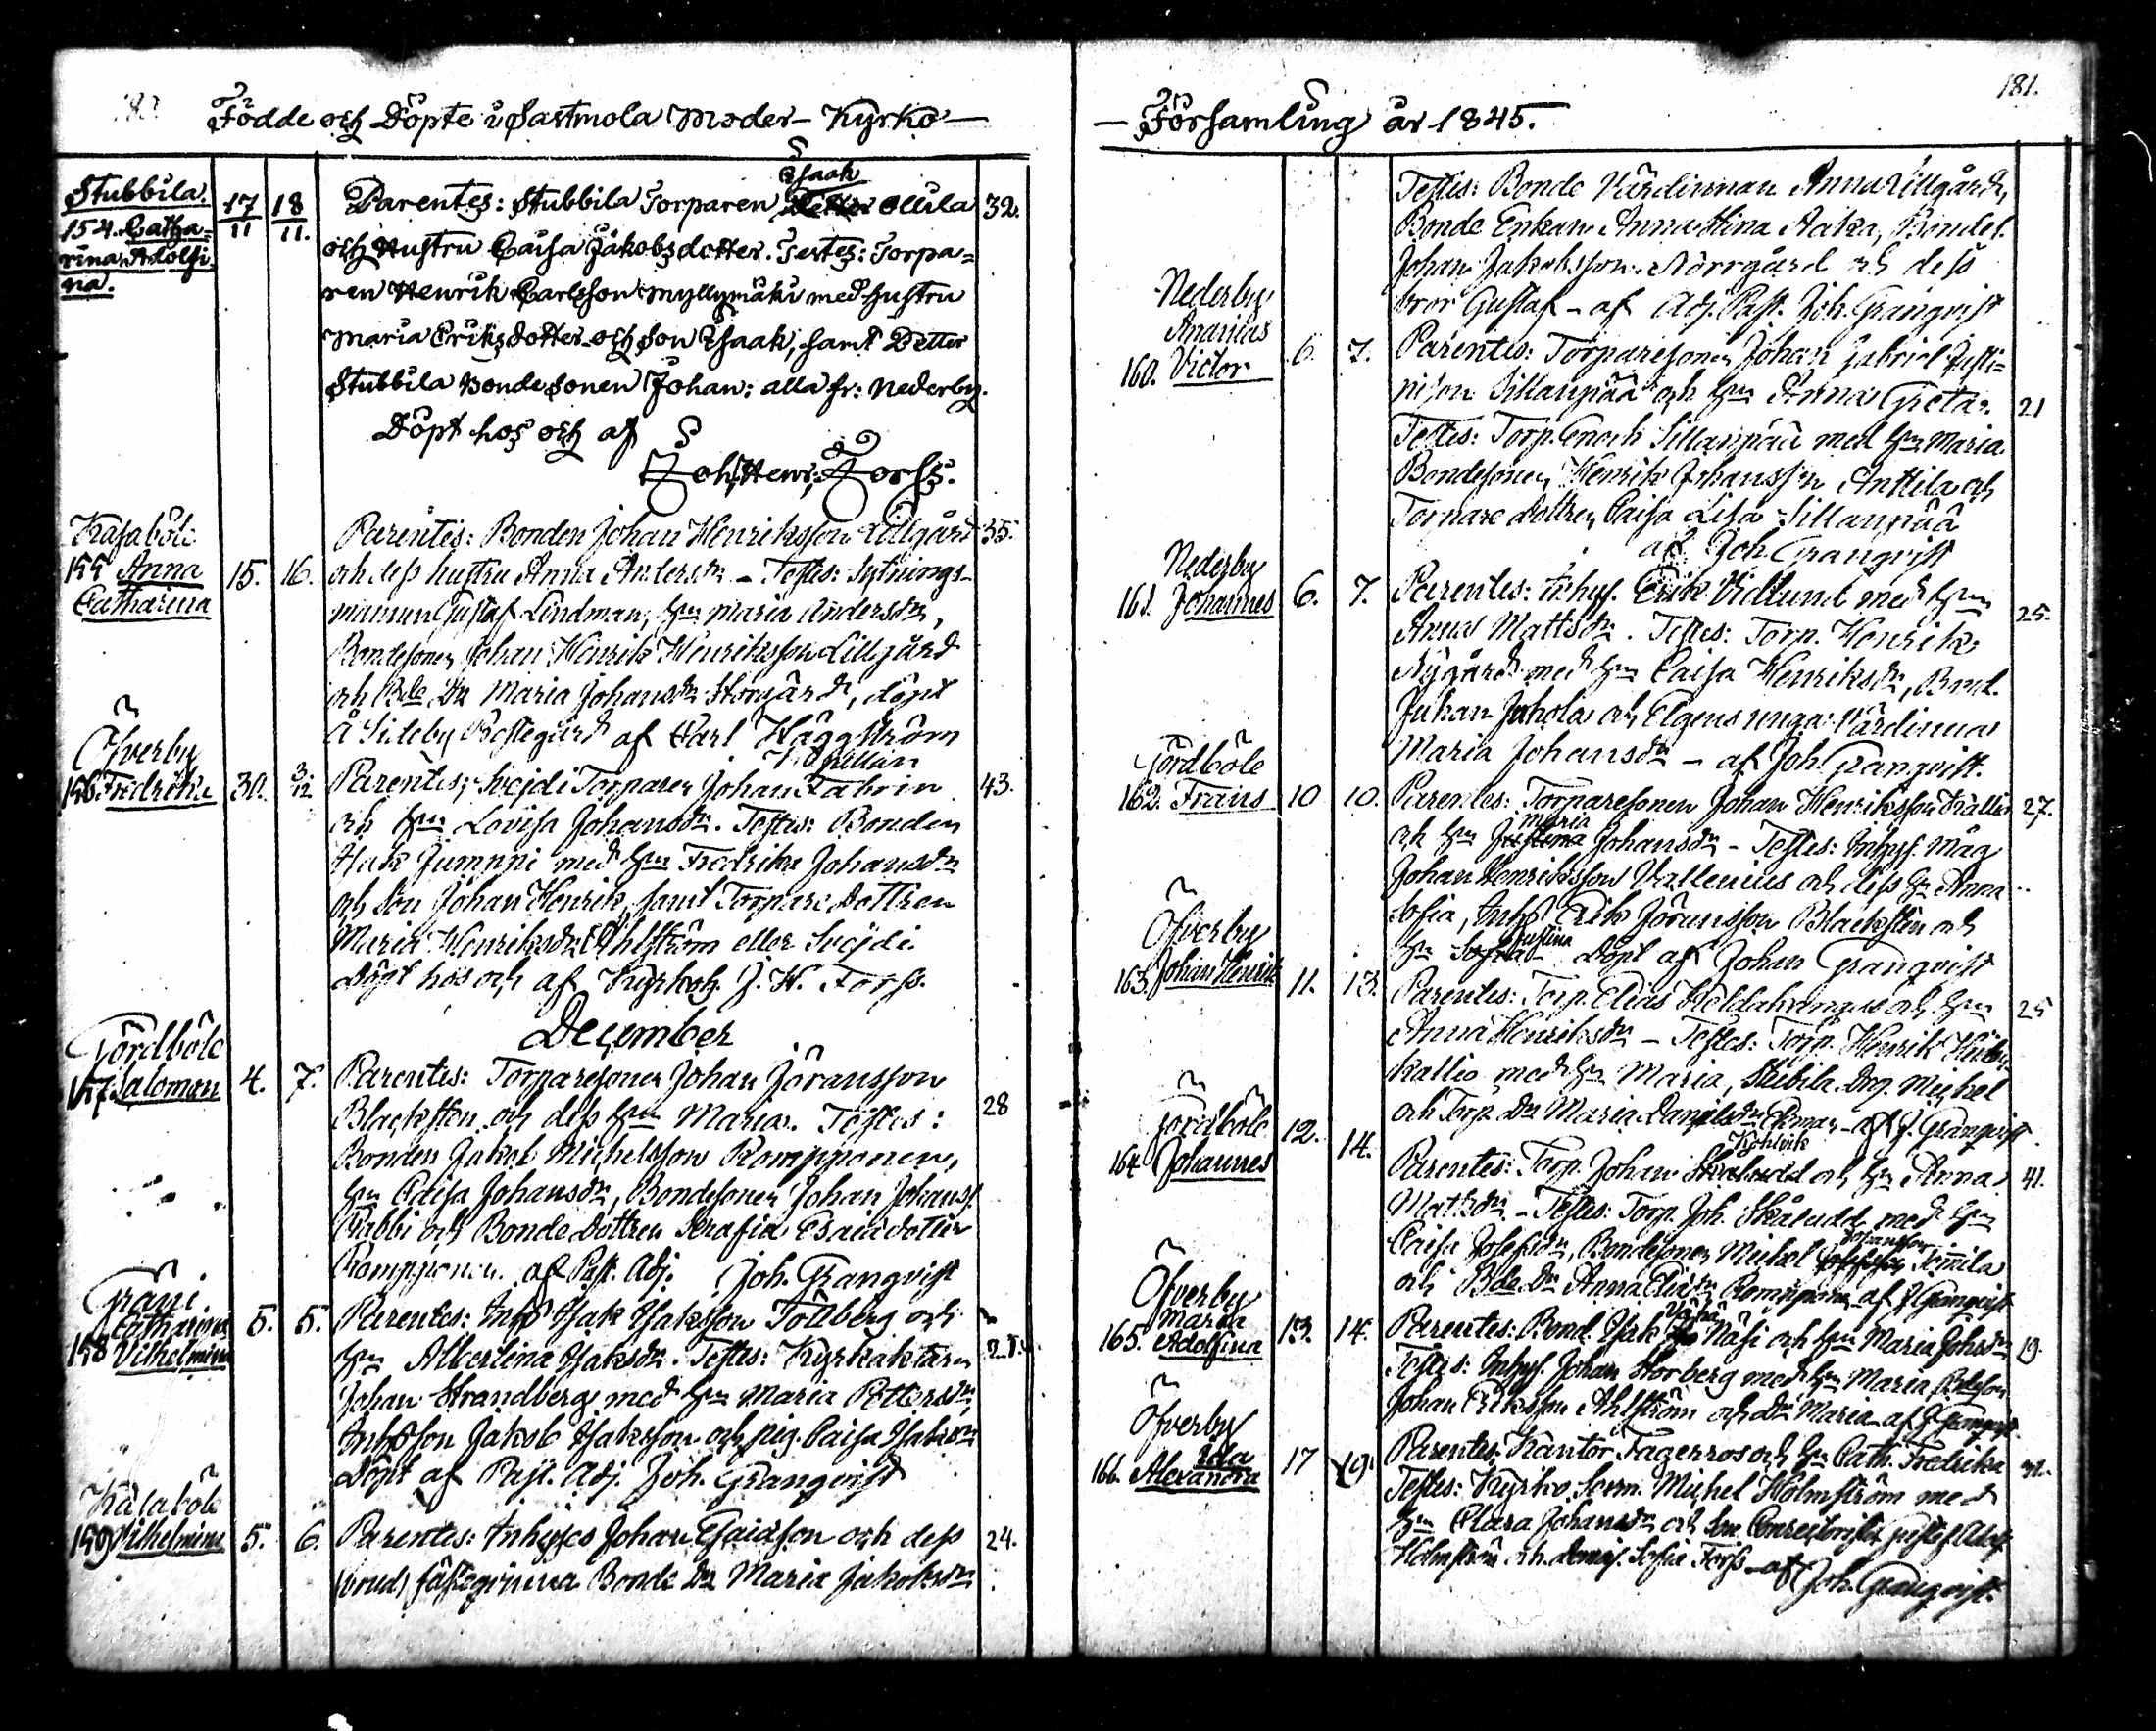 Födde och Döpte i Sastmola Moder- Kyrko-
Stubbila.
154. Catha-
rina Adolfi-
na.
17/11
18/11.
Isaak
Parentes: Stubbila Torparen Ollila
32.
och Hustru Caisa Jakobsdotter. Testes: Torpa=
ren Henrik Carlsson Myllymäki med hustru
Maria Eriksdotter och Son Isaak, samt Detter
Stubbila Bonde Sonen Johan: alla fr: Nederby.
Döpt hos och af
Joh: Henr: Forss.
Kasaböle
155 Anna
Catharina
15.
16.
Parentes: Bonden Johan Henriksson Lillgård
35.
och dess hustru Anna Andersdr. - Testes: Sytnings-
mannen Gustaf Lindman, hun Maria Andersdr,
Bondesonen Johan Henrik Henriksson Lillgård
och Bde Dr Maria Johansdr Storgård, döpt
å Sideby Bostegård af Carl Häggström
Kapellan
Öfverby
156 Fredrika
30.
3/12
Parentes; Sicjdi Torparen Johan Fahrin
43.
och hun Lovisa Johansdr. Testes: Bonden
Isak Jumppi med hun Fredrika Johansdr
och Son Johan Henrik, samt Torpare Dottren
Maria Henriksdr Ahlström eller Sicjdi.
Döpt hos och af Kyrkoh. J. H. Forss.
December
Tördböle
157 Saloman
4.
7.
Parentes: Torparesonen Johan Göransson
28
Blacksten och dess hun Maria. Testes:
Bonden Jakob Michelsson Romppanen,
hun Caisa Johansdr, Bondesonen Johan Johanss.
Rabbi och Bonde Dottren Serafia Esaiædotter
Romppanen. af Past. Adj. Joh. Granqvist
Gräni.
Catharina
158 Vilhelmina
5.
5.
Parentes: Inhs Isak Isaksson Tollberg och
hun Albertina Isaksdr. Testes: Kyrkväktaren
Johan Strandberg med hun Maria Pettersdr,
Inhs son Jakob Isaksson och pig. Caisa Isaksdr
Döpt af Past. Adj. Joh. Granqvist
Kasaböle
159 Vilhelmina
5.
6.
Parentes: Inhyses Johan Esaiasson och dess
24.
(brud) fästeqvinna Bonde Dr Maria Jakobsdr
181.
- Församling år 1845.
Testis: Bonde Värdinnan Anna Lillgård,
Bonde Enkan Anna Stina Aaka, Bondes.
Johan Jakobsson Norrgård och dess
bror Gustaf - af Adj. Past. Joh. Granqvist
Nederby
Ananias
160. Victor
6.
7.
Parentes: Torparesonen Johan Gabriel Justi=
nison Sillanpää och hun Anna Greta.
21
Testes: Torp. Enoch Sillanpää med hun Maria
Bondesonen Henrik Johansson Anttila och
Torpare dottren Caisa Lisa Sillanpää
af Joh. Granqvist
Nederby
161. Johannes
6.
7.
Parentes: Inhys. Erik Vidlund med hun
25.
Anna Mattsdr. Testes: Torp. Henrik
Nygård med hun Caisa Henriksdr, Bond.
Juhan Juhola och Elgens unga Värdinna
Maria Johansdr - af Joh. Granqvist.
Tördböle
162. Frans
10
10.
Parentes: Torparesonen Johan Henriksson Kallio
27.
maria
och hun Justina Johansdr - Testes: Inhys. måg
Johan Henriksson Vallenius och dess hu Anna
Sofia, Inhs Erik Göransson Blacksten och
Justina
hu Sofia. Döpt af Johan Granqvist
Öfverby
163. Johan Henrik
11.
13.
Parentes: Torp. Elias Koldahengas och hun
25
Anna Henriksdr - Testes: Torp. Henrik
kallio med hun Maria, Skibila Drg. Michel
och Torp. Dr Maria Danielsdr Ekman - af J. Granqvist
Tördböle
164. Johannes
12.
14.
Parentes: Torp. Johan och hun Anna
41.
Matsdr. - Testes: Torp. Joh. Skåludd med hun
Johansson
Caisa Josefsdr, Bondesonen Michel Josefsson Tommila
och Bde Dr Anna Eliædr Romppanen af J. Granqvist
Öfverby
Maria
165. Adolfina
13.
14.
Parentes: Bond. Isak Näsi och hun Maria Johsdr
19.
Testes: Inhys. Johan Storberg med hun Maria, Bdeson
Johan Eriksson Ahlström och Dr Maria af J. Granqvist.
Öfverby
Ida
166. Alexandra
17
19.
Parentes: Kantor Fagerroos och hu Cath. Fredrika
Testes: Kyrko Serm. Michel Holmström med
hun Clara Johansdr och Son Conrectorist Gustaf Adolf
Holmström och demois. Sofie Forss - af Joh. Granqvist.